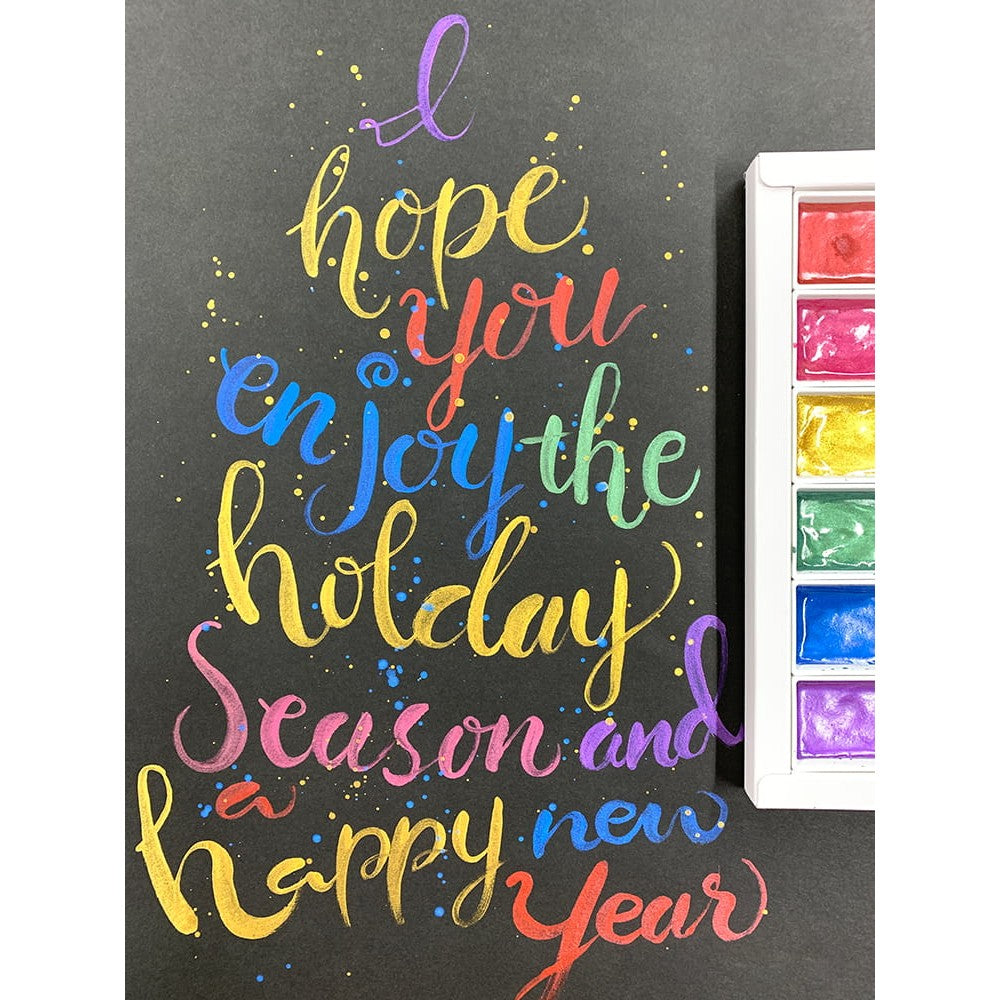 I
hope
you
enjoy the
holday
Season and
a
happy new
year